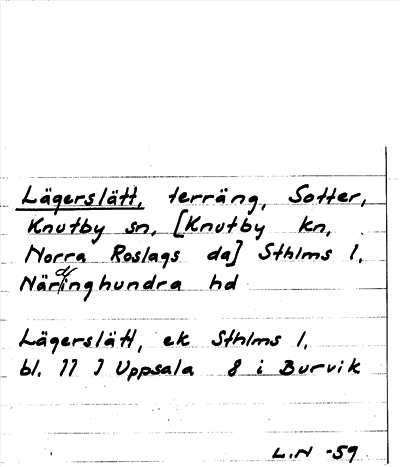 Lägerslätt, terräng, Sotter,
Knutby sn, [Knutby kn,
Norra Roslags da] Sthlms l.
Närdinghundra hd
Lägerslätt, ek Sthlms l.
bl. 11 J Uppsala 8 i Burvik
L.N -59